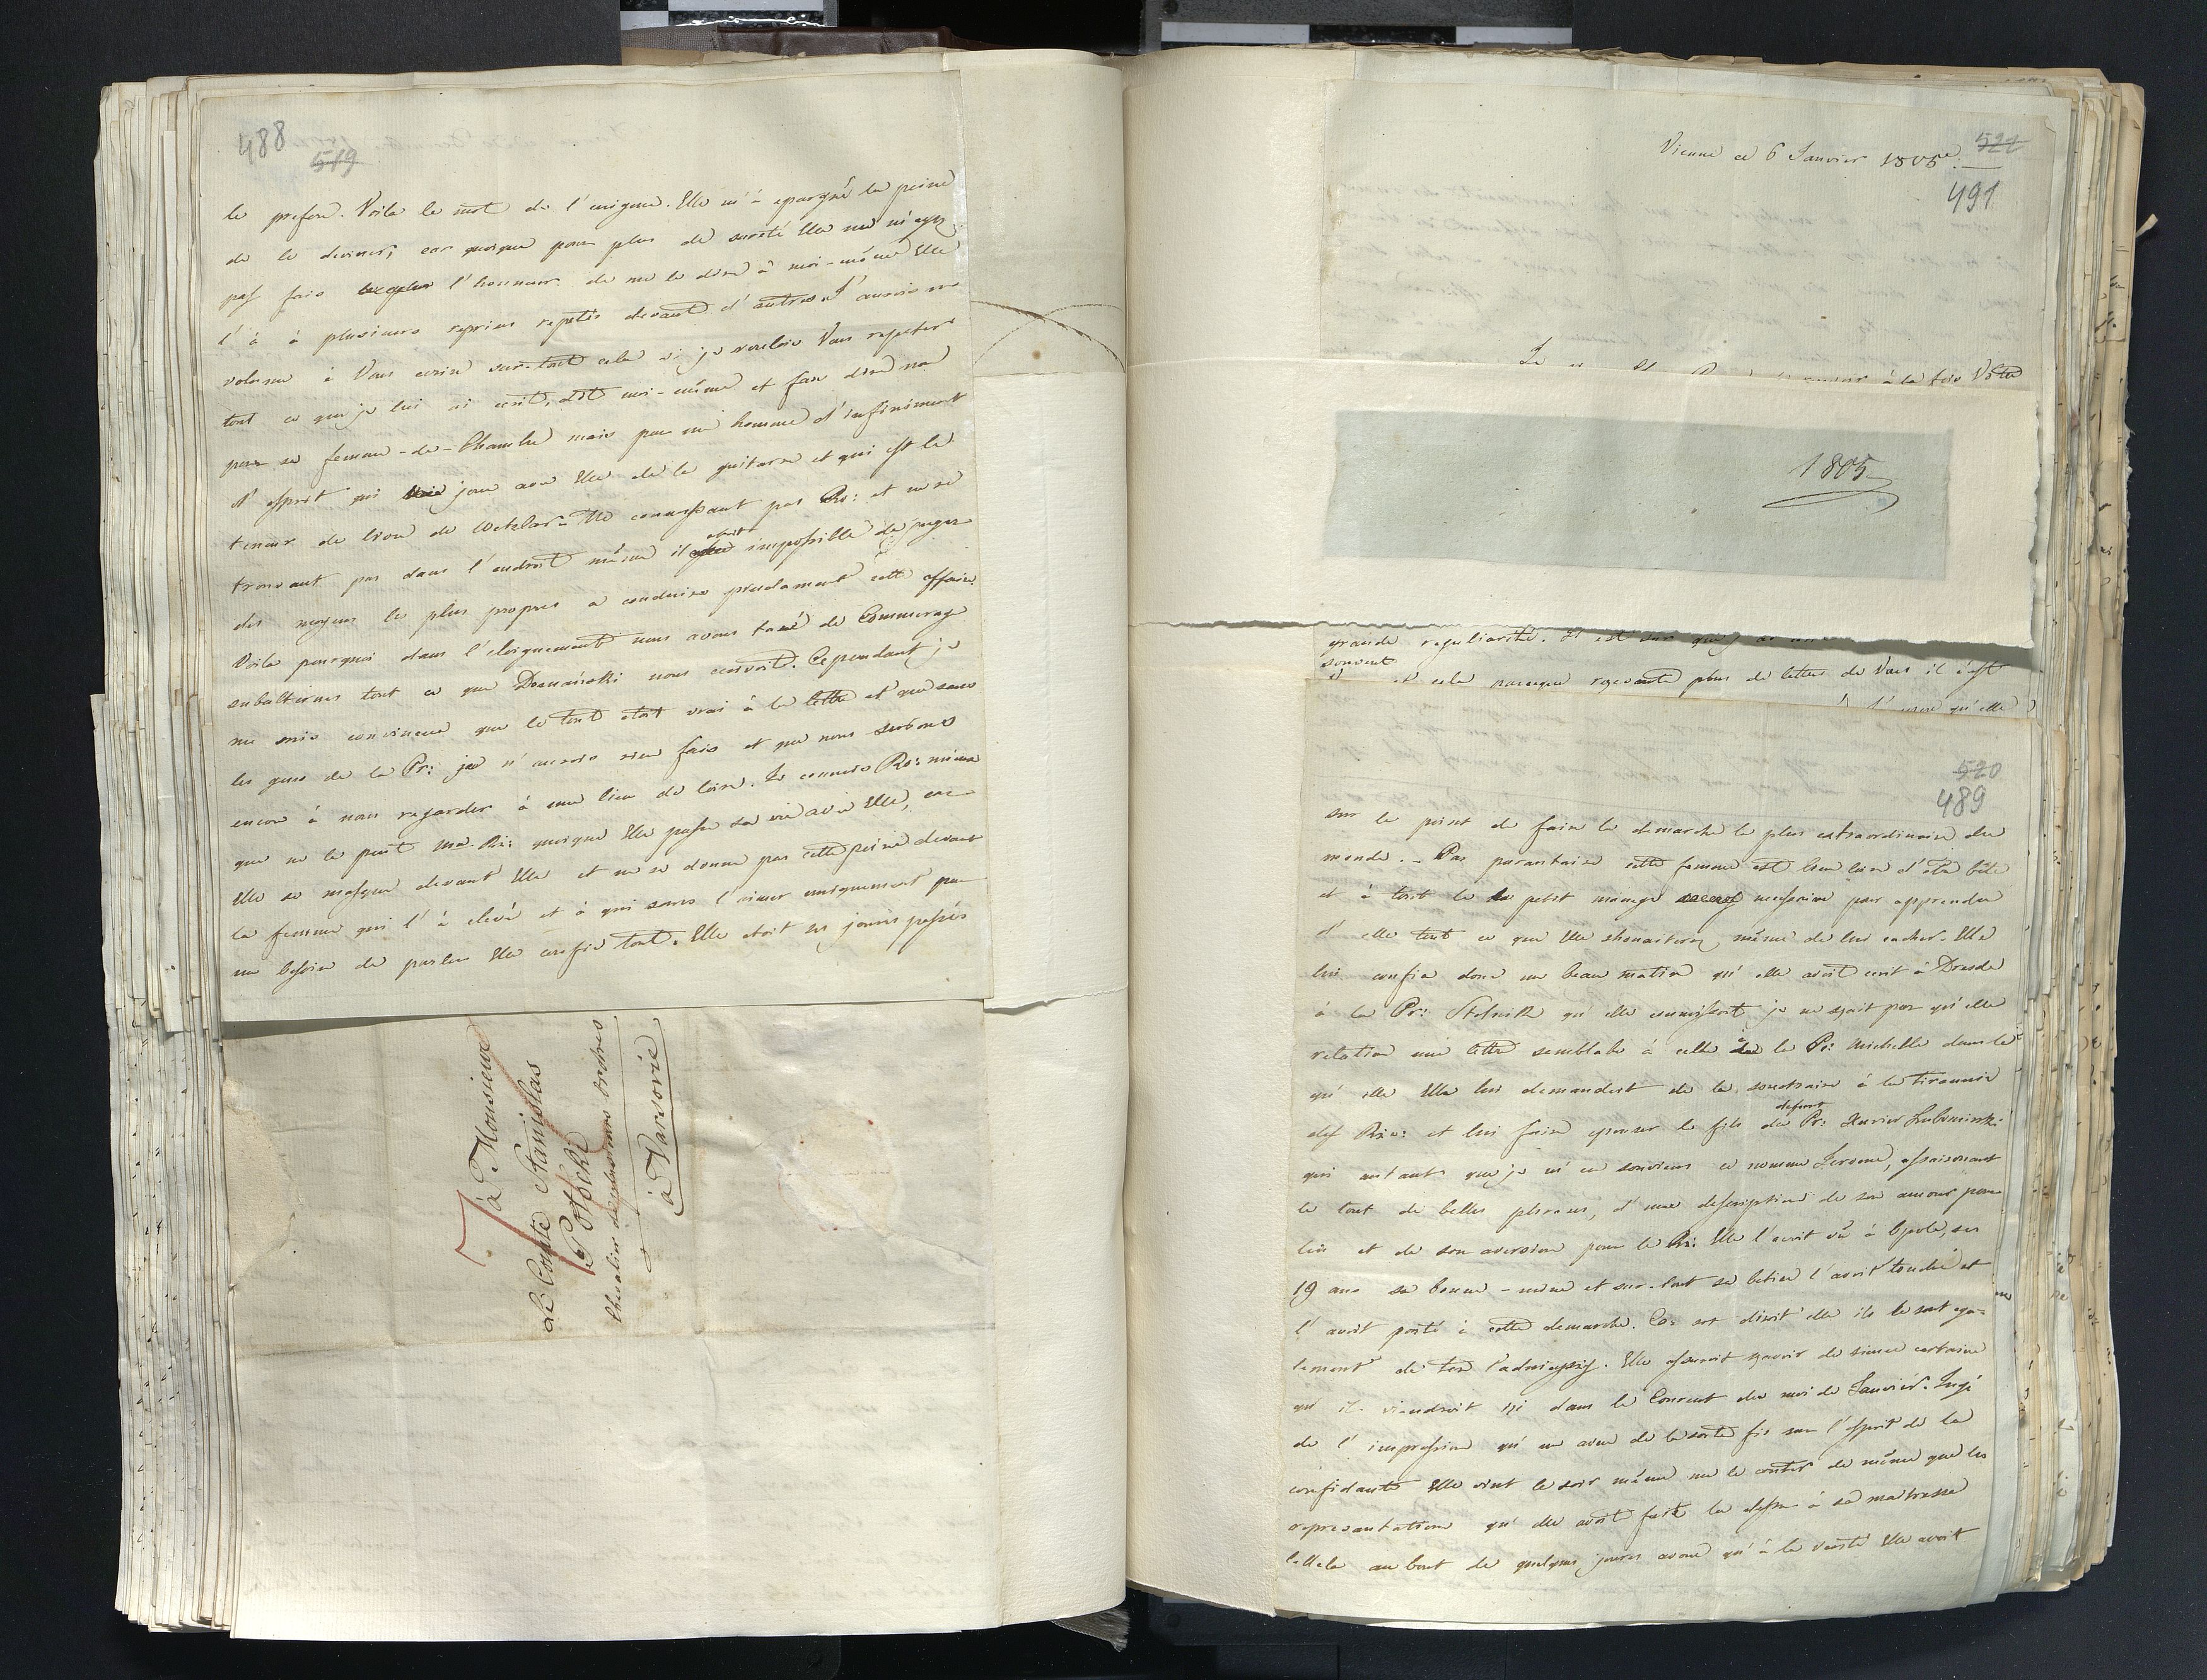 488
519
le prefere. Voila le mot de l'enigme. Elle m'à epargné la peine
de le deviner, car quoique pour plus de sureté Elle ne m'aye
pas fais l'honneur de me le dire à moi-même Elle
l'à à plusieurs reprises repetés devant d'autres. J'aurois un
volume à Vous ecrire sur-tout cela si je voulois Vous repeter
tout ce que je lui ai ecrit, dit moi-même et fais dire non
par sa femme-de-Chambre mais par un homme d'infiniment
d'esprit qui joue avec Elle de la guitarre et qui est le
teneur de livre de Wetzlar. Ne connaissant pas Ro: et ne se
trouvant pas dans l'endroit même il etoit impossible de juger
des moyens le plus propres a conduire prudament cette affaire.
Voila pourquoi dans l'eloignement nous avons taxé de Commerage
subalternes tout ce que Domański nous ecrivoit. Cependant je
me suis convaincue que le tout etoit vrai à la lettre et que sans
les gens de la Pr: je n'aurois rien fais et que nous serions
encore à nous regarder à une lieu de loin. Je connois Ro: mieux
que ne le peut Ma. Ro: quoique Elle passe sa vie avec Elle, car
Elle se masque devant Elle et ne se donne pas cette peine devant
la femme qui l'à elevé et à qui sans l'aimer uniquement par
un besoin de parler Elle confie tout. Elle etoit ses jours passés
à Monsieur
Le Comte Stanislas
Potocki
Chevalier de plusieurs Ordres
à Varsovie
Vienne ce 6 Janvier 1805
521
491
à la fois Votre
1805
grande regularité. Il est sur que j'ai
souvent
et cela parceque recevant plus de lettres de Vous il s'est
qu'elle
520
489
sur le point de faire la demarche la plus extraordinaire du
monde. - Par parantaise cette femme est bien loin d'être bête
et à tout le petit manege necessaire pour apprendre
d'elle tout ce que Elle shouaiteroy même de lui cacher. Elle
lui confia donc un beau matin qu'elle avoit ecrit à Dresde
à la Pr: Stolnik qu'elle connaissoit je ne sçait par qu'elle
relation une lettre semblable à celle de la Pr: Michelle dans la
qu'elle Elle lui demandoit de la soustraire à la tirannie
des Rze: et lui faire epouser le fils du defunt Pr: Xavier Lubomirski
qui autant que je m'en souviens ce nomme Jerome, assaisonant
le tout de belles phrases, d'une description de son amour pour
lui et de son aversion pour le Ro: Elle l'avoit vû à Opole, ses
19 ans sa bonne-mine et sur-tout sa betise l'avoit touché et
l'avoit porté à cette demarche. Co: sot disoit elle ils le sont ega-
lement de ten ładnieyszy. Elle assuroit sçavoir de sience certaine
qu'il viendroit ici dans le Courent du mois de Janvier. Jugé
de l'impression qu'un aveu de la sorte fis sur l'esprit de la
confidante Elle vint le soir même me le conter de même que les
representations qu'elle avoit faite la dessu à sa maitresse
Celle la au bout de quelques jours avoué qu'à la verité Elle avoit